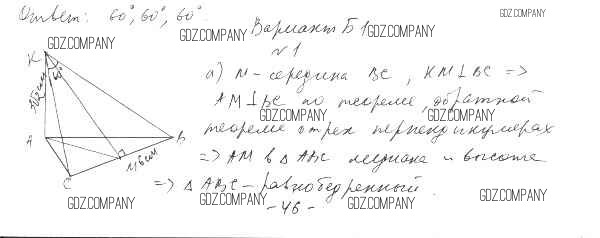 Ответ: 60°, 60°, 60°.
GDZ.COMPANY
GDZ.COMPANY
Вариант Б1
GDZ.COMPANY
GDZ.COMPANY
№1
K
60°
а) M – середина BC, KM⊥BC =>
GDZ.COMPANY
AM⊥BC по теореме, обратной
GDZ.COMPANY
GDZ.COMPANY
A
B
теореме о трех перпендикулярах
M 6 см
=> AM в △ABC медиана и высота
C
=> △ABC – равнобедренный.
GDZ.COMPANY
GDZ.COMPANY
GDZ.COMPANY
GDZ.COMPANY
- 46 -